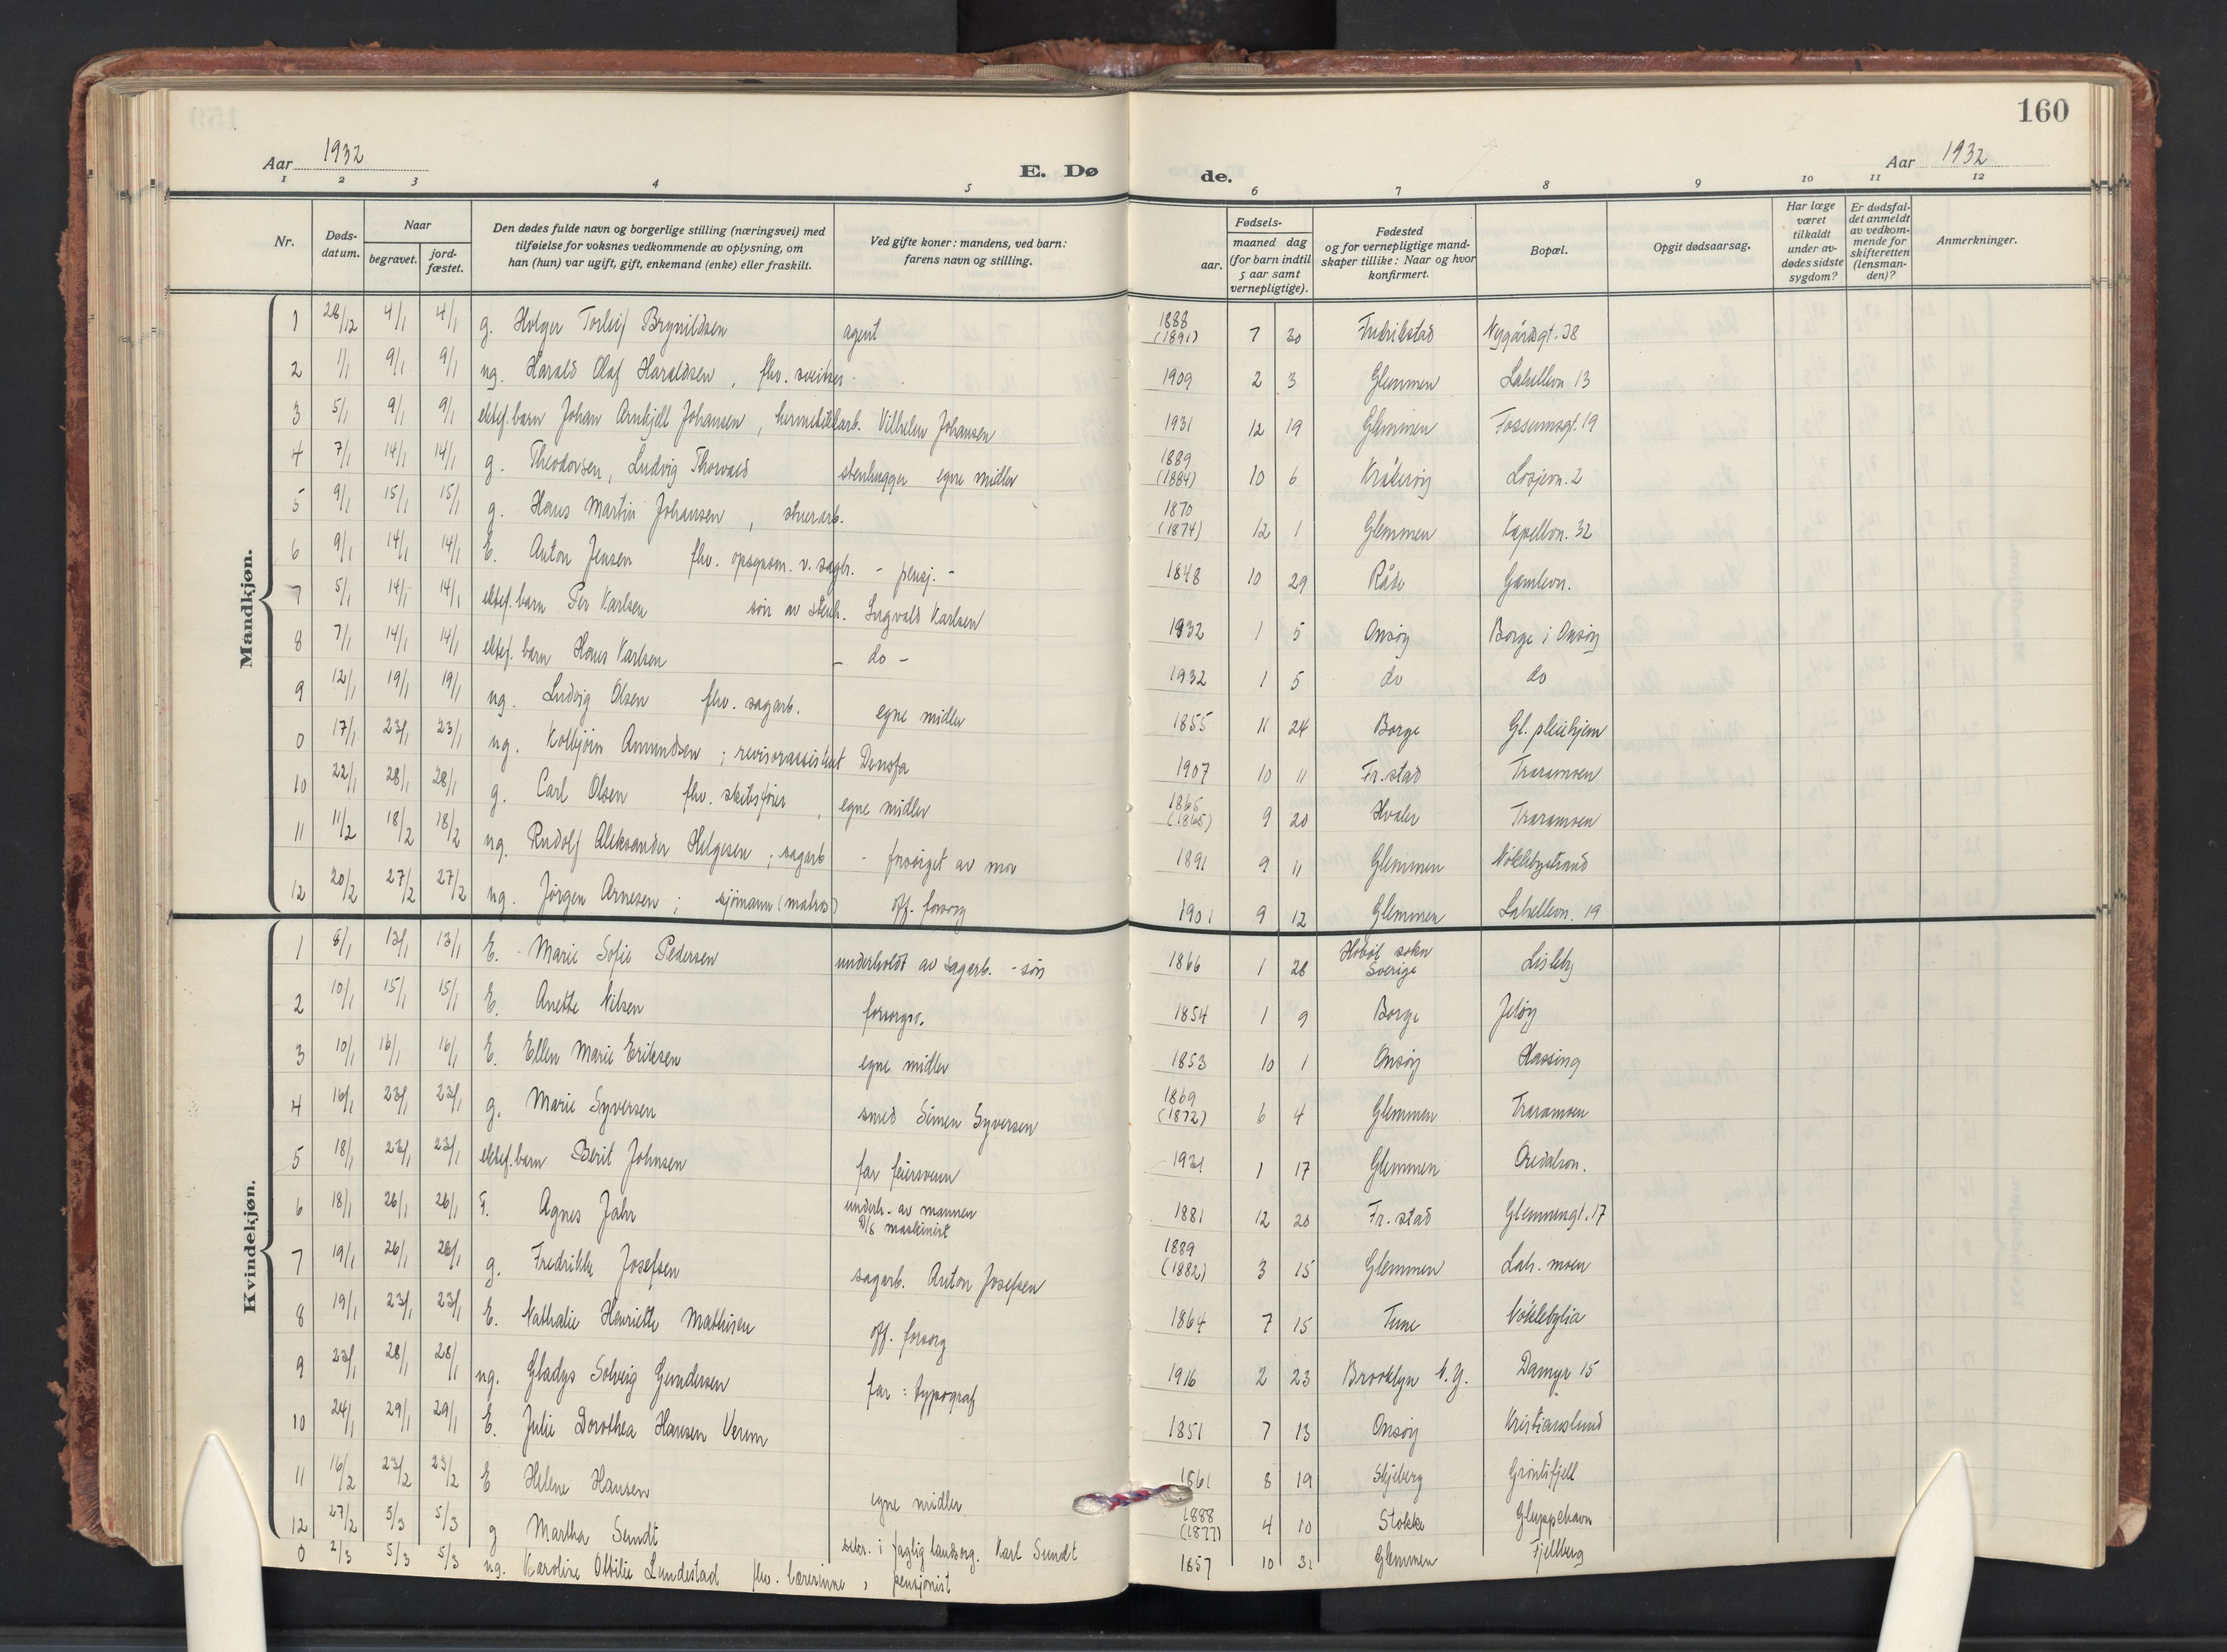 160
Aar 1932
E. Dø
de.
Aar 1932
1 2 3 4 5 6 7 8 9 10 11 12
Nr.
Døds-datum.
Naar
begravet.
jord-fæstet.
Den dødes fulde navn og borgerlige stilling (næringsvei) med
tilføielse for voksnes vedkommende av oplysning, om
han (hun) var ugift, gift, enkemand (enke) eller fraskilt.
Ved gifte koner: mandens, ved barn:
farens navn og stilling.
Fødsels-
aar.
maaned dag
(for barn indtil
5 aar samt
vernepligtige).
Fødested
og for vernepligtige mand-
skaper tillike: Naar og hvor
konfirmert.
Bopæl.
Opgit dødsaarsag.
Har læge
været
tilkaldt
under av-
dødes sidste
sygdom?
Er dødsfal-
det anmeldt
av vedkom-
mende for
skifteretten
(lensman-
den)?
Anmerkninger.
Mandkjøn.
1 28/12 4/1 4/1 g. Holger Torleif Brynildsen agent 1888 (1891) 7 30 Fredrikstad Nygårdsgt. 38
2 1/1 9/1 9/1 ug. Harald Olaf Haraldsen, fhv. 1909 2 3 Glemmen Labellvn. 13
3 5/1 9/1 9/1 ektef. barn Johan Arnkjell Johansen, hermetikkarb. Vilhelm Johansen 1931 12 19 Glemmen Fossumsgt. 19
4 7/1 14/1 14/1 g. Theodorsen, Ludvig Thorvald stenhugger egne midler 1889 (1884) 10 6 Kråkerøy Losjevn. 2
5 9/1 15/1 15/1 g. Hans Martin Johansen, stuerarb. 1870 (1874) 12 1 Glemmen Kapellvn. 32
6 9/1 14/1 14/1 E. Anton Jensen fhv. opsynsm. v. sagbr. - pensj. - 1848 10 29 Råde Gamlevn.
7 5/1 14/1 14/1 ektef. barn Per Karlsen søn av stenh. Ingvald Karlsen 1932 1 5 Onsøy Borge i Onsøy
8 7/1 14/1 14/1 ektef. barn Hans Karlsen - do - 1932 1 5 do do
9 12/1 19/1 19/1 ug. Ludvig Olsen fhv. sagarb. egne midler 1855 11 24 Borge Gl. pleiehjem
0 17/1 23/1 23/1 ug. Kolbjørn Amundsen; revisorassistent Denofa 1907 10 11 Fr.stad Traramoen
10 22/1 28/1 28/1 g. Carl Olsen fhv. skibsfører, egne midler 1865 (1865) 9 20 Hvaler Traramoen
11 11/2 18/2 18/2 ug. Rudolf Aleksander Helgesen; sagarb - forsørget av mor 1891 9 11 Glemmen Nøklebystrand
12 20/2 27/2 27/2 ug. Jørgen Arnesen; sjømann (matros) off. forsorg 1901 9 12 Glemmen Labellvn. 19
Kvindekjøn.
1 8/1 13/1 13/1 E. - Marie Sofie Pedersen underholdt av sagarb. - søn 1866 1 28 Hobøl sokn Sverige Lisleby
2 10/1 15/1 15/1 E. Anette Nilsen forsorgsv. 1854 1 9 Borge Jeløy
3 10/1 16/1 16/1 E. Ellen Marie Eriksen egne midler 1853 10 1 Onsøy Hassing
4 16/1 23/1 23/1 g. Marie Syversen smed Simen Syversen 1869 (1872) 6 4 Glemmen Traramoen
5 18/1 23/1 23/1 ektef. barn Berit Johnsen far feiersvenn 1931 1 17 Glemmen Oredalsvn.
6 18/1 26/1 26/1 F. Agnes Jahr underh. av mannen D/S maskinist 1881 12 20 Fr. stad Glemmengt. 17
7 19/1 26/1 26/1 g. Fredrikke Josefsen sagarb. Anton Josefsen 1889 (1882) 3 15 Glemmen Lah. moen
8 19/1 23/1 23/1 E. Nathalie Henriette Mathisen off. forsorg 1864 7 15 Tune Nøklebylia
9 23/1 28/1 28/1 ug. Gladys Solveig Gundersen far: typograf 1916 2 23 Brooklyn N.Y. Damyr 15
10 24/1 29/1 29/1 E. Julie Dorothea Hansen Verum 1851 7 13 Onsøy Kristianslund
11 16/2 23/2 23/2 E Helene Hansen egne midler 1861 8 19 Skjeberg Grøntfjell
12 27/2 5/3 5/3 g Martha Sundt sekr. i faglig landsorg. Karl Sundt 1888 (1877) 4 10 Stokke Gluppehavn
0 2/3 5/3 5/3 ug. Karoline Ottilie Lundestad fhv. lærerinne, pensjonist 1857 10 31 Glemmen Fjellberg